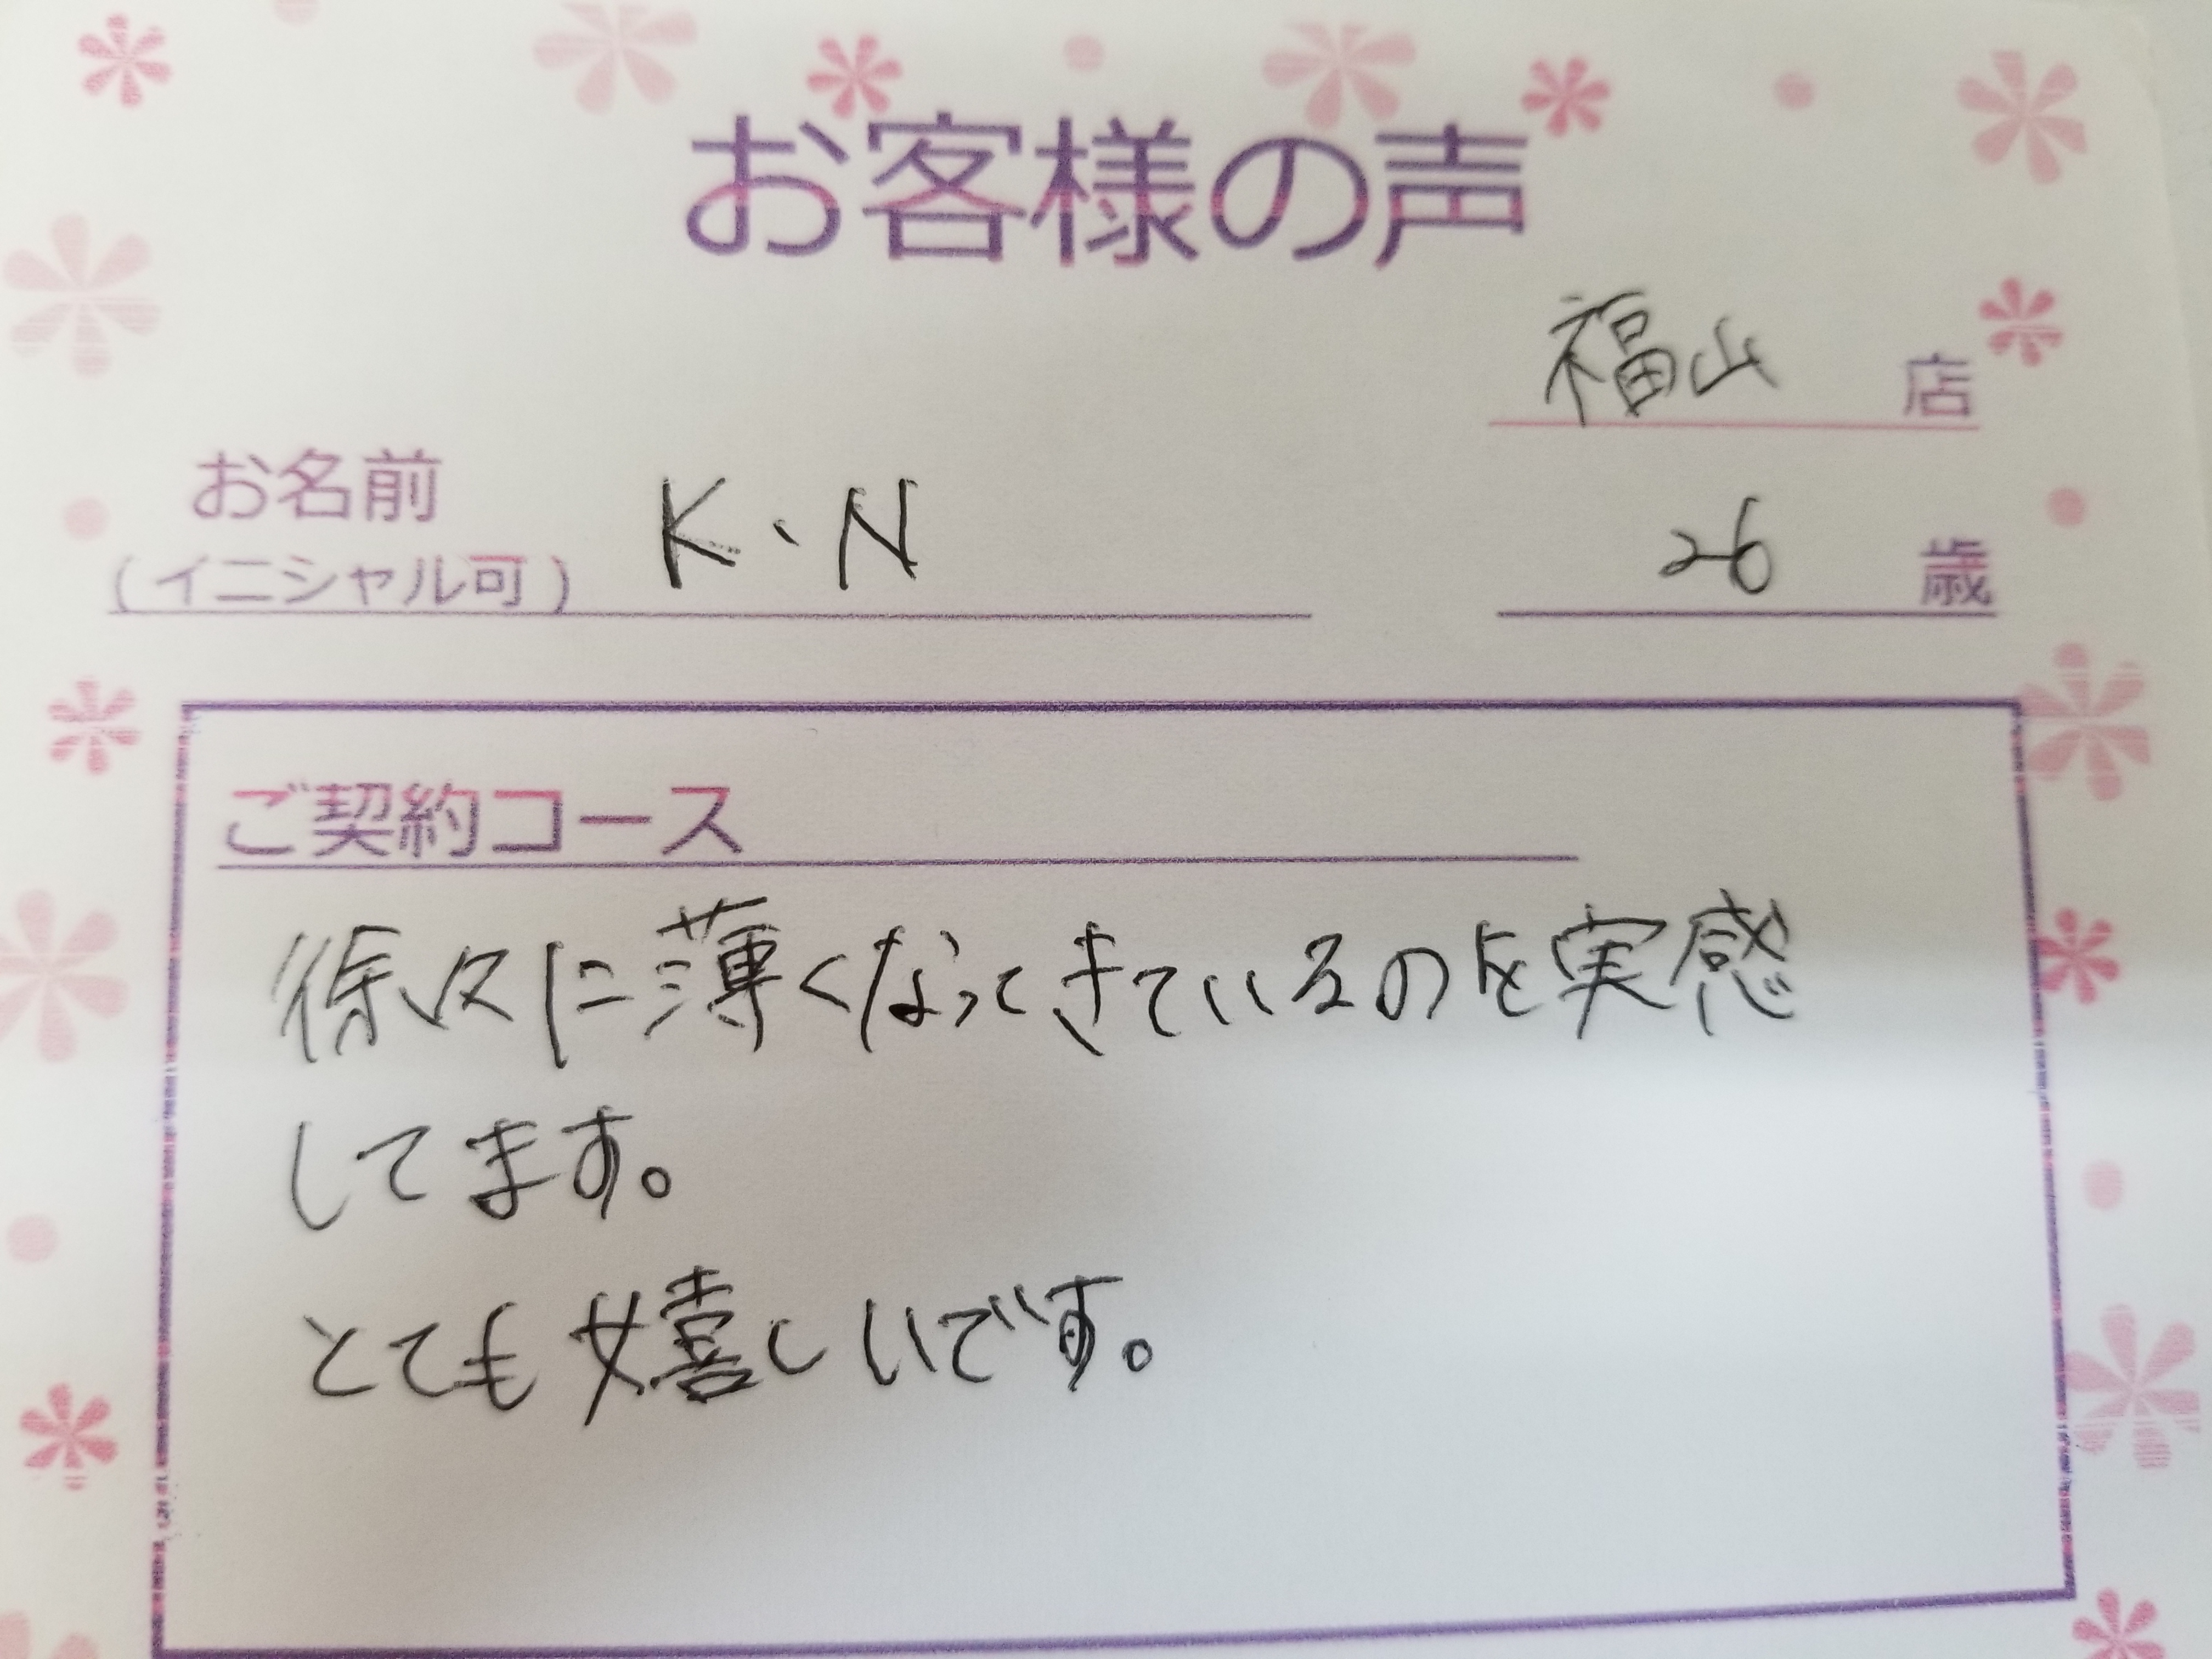 お客様の声
福山 店
お名前
(イニシャル可) K・N 26 歳
ご契約コース
徐々に薄くなってきているのを実感
してます。
とても嬉しいです。